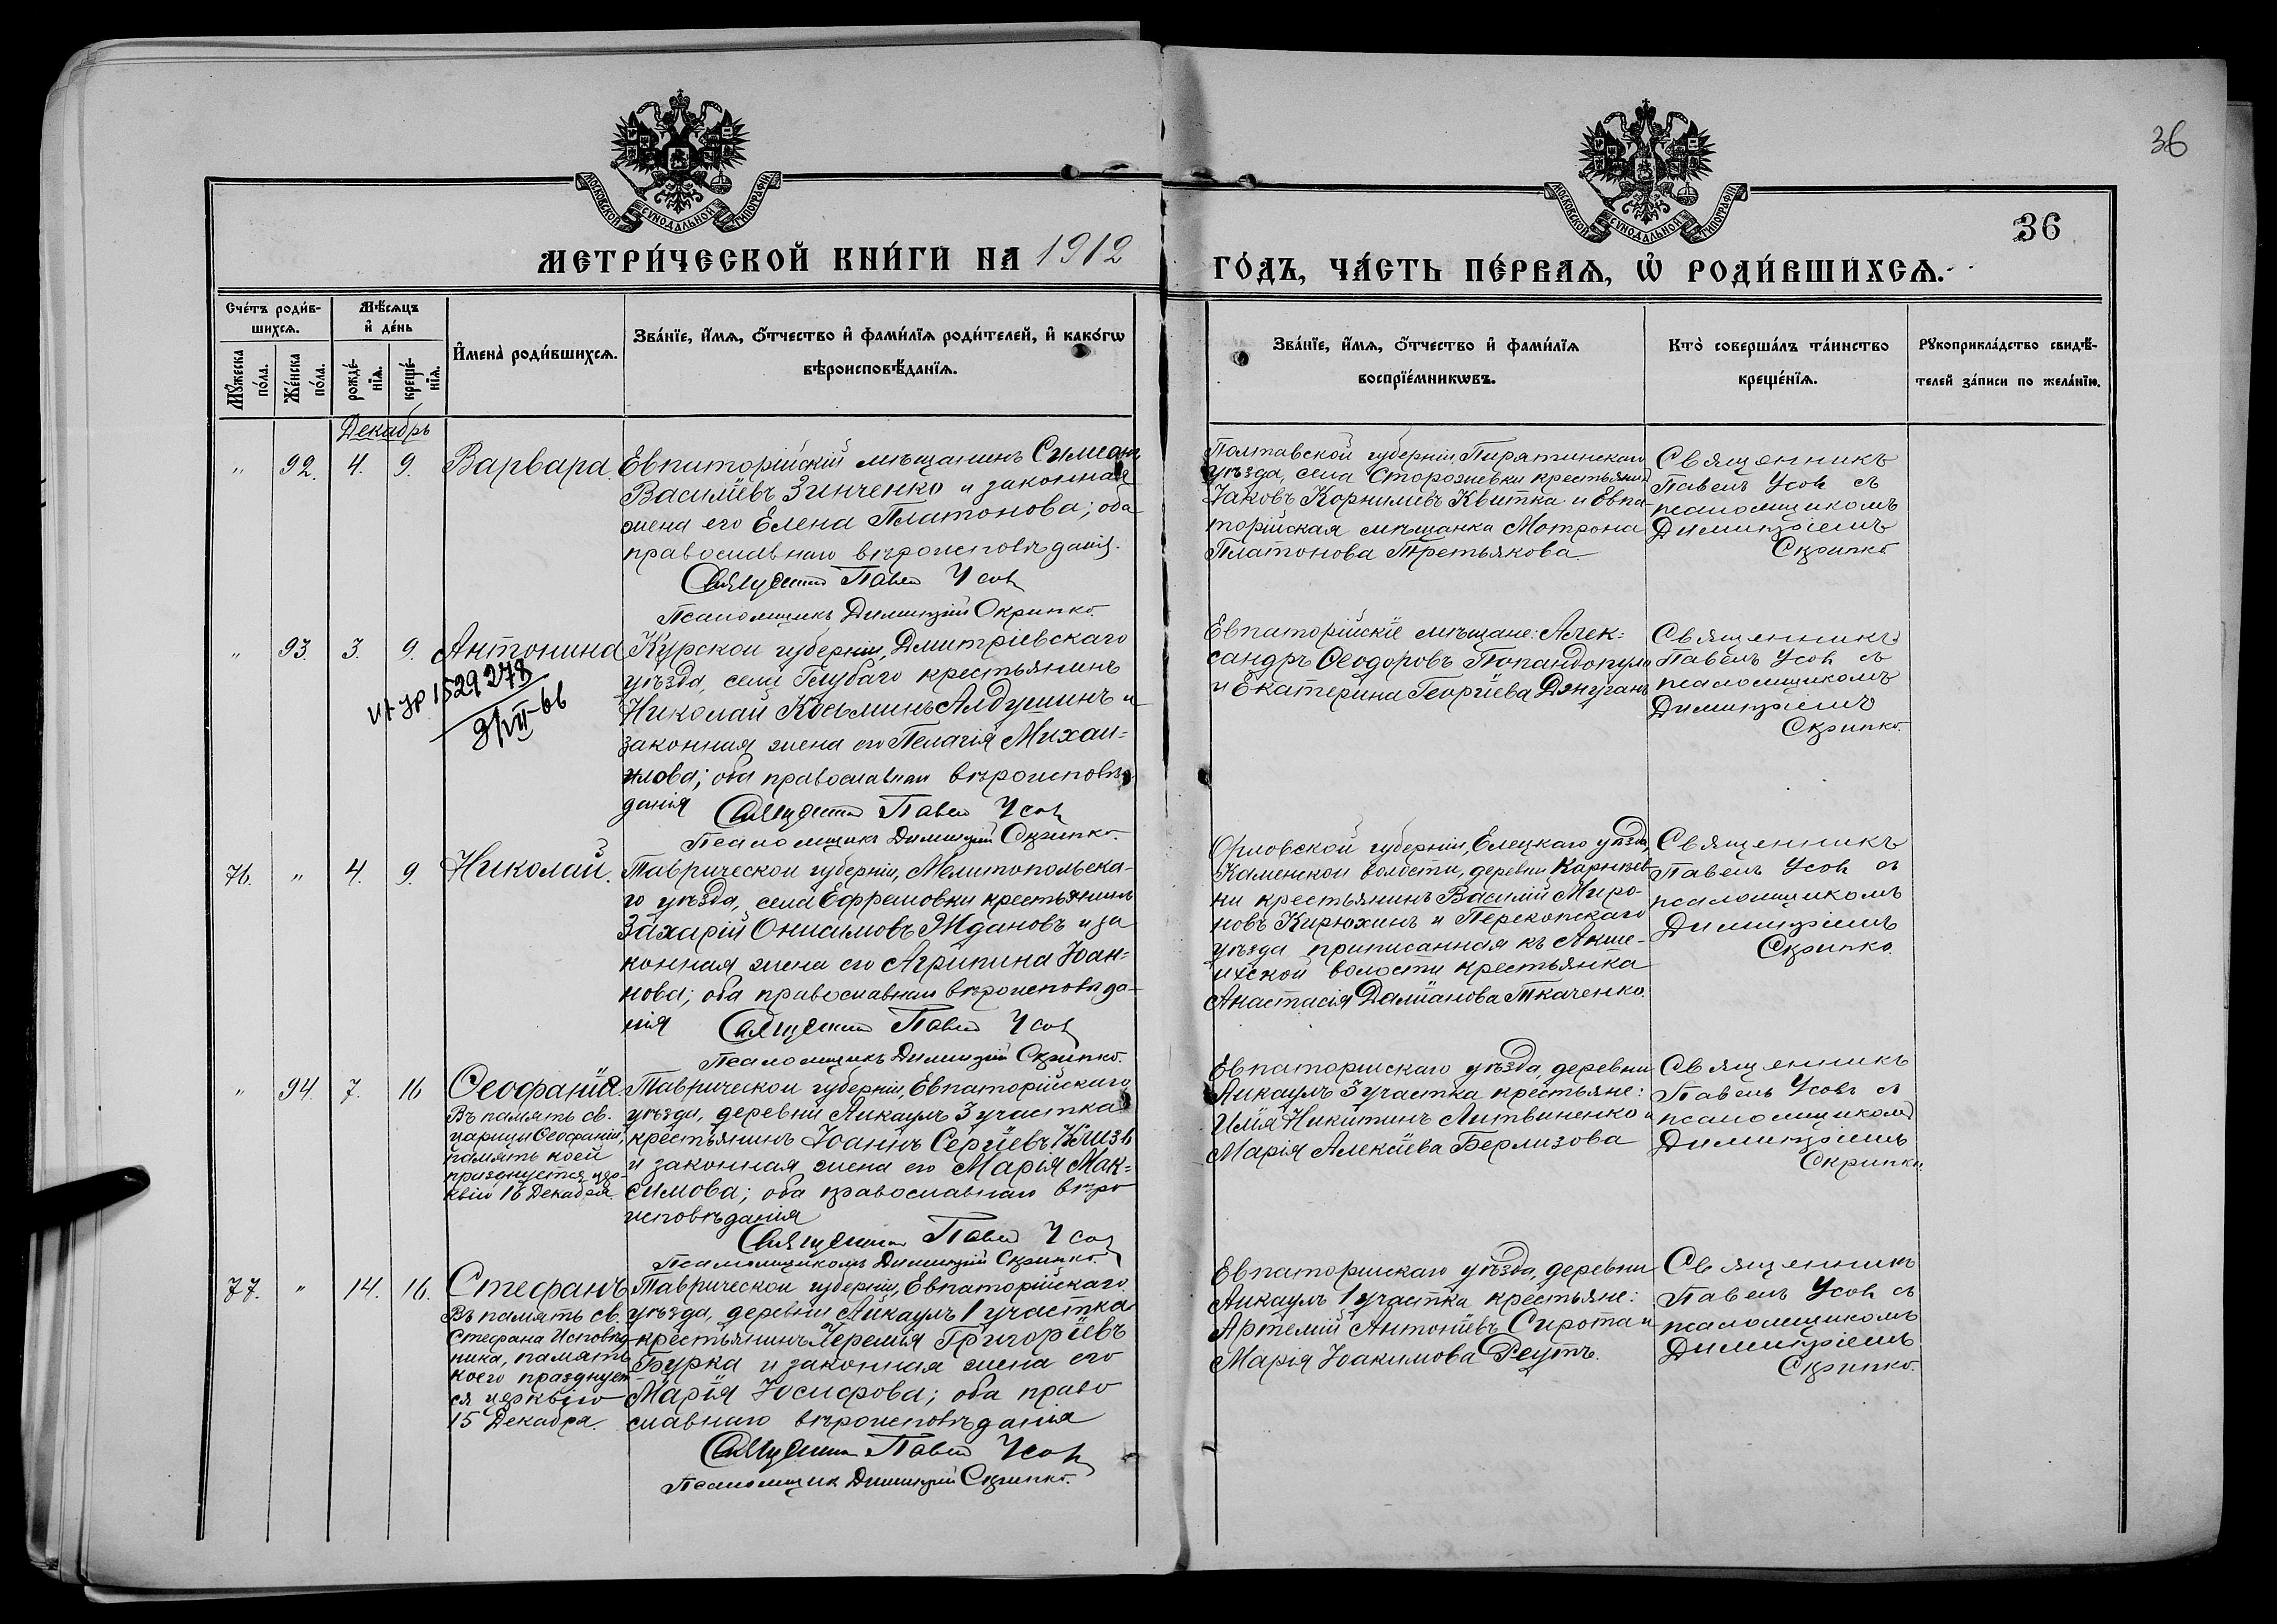 36
МОСКОВСКОЙ СУНОДАЛЬНОЙ ТИПОГРАФІИ
МОСКОВСКОЙ СУНОДАЛЬНОЙ ТИПОГРАФІИ
36
МЕТРИ́ЧЕСКОЙ КНИ́ГИ НА 1912
ГО́ДЪ, ЧА́СТЬ ПЕ́РВАѦ, Ѡ РОДИ́ВШИХСѦ.
Сче́тъ роди́в-
шихсѧ.
Мѣ́сѧцъ
и҆ де́нь
Мꙋ́жеска
по́ла.
Же́нска
по́ла.
рожде́-
нїѧ.
креще́-
нїѧ.
И҆мена̀ роди́вшихсѧ.
Зва́нїе, и҆́мѧ, ѻ҆́тчество и҆ фами́лїѧ роди́телей, и҆ како́гѡ
вѣроисповѣ́данїѧ.
Зва́нїе, и҆́мѧ, ѻ҆́тчество и҆ фами́лїѧ
воспрїе́мникѡвъ.
Кто̀ соверша́лъ та́инство
креще́нїѧ.
Рꙋкоприкла́дство свидѣ́-
телей за́писи по жела́нїю.
Декабрь
" 92. 4. 9. Варвара.
Евпаторійскій мѣщанинъ Симеонъ
Василіевъ Зинченко и законная
жена его Елена Платонова; оба
православнаго вѣроисповѣданія.
Священник Павел Усов
Псаломщикъ Димитрій Скрипко.
Полтавской губерніи, Пирятинскаго
уѣзда, села Сторожевки крестьянинъ
Іаковъ Корниліевъ Квитка и Евпа-
торійская мѣщанка Мотрона
Платонова Третьякова
Священникъ
Павелъ Усов съ
псаломщикомъ
Димитріемъ
Скрипко
" 93. 3. 9. Антонина
1529278
9/VII-66
Курской губерніи, Дмитріевскаго
уѣзда, села Глубаго крестьянинъ
Николай Косьминъ Алдушинъ и
законная жена его Пелагія Михаи-
лова; оба православнаго вѣроисповѣ-
данія Священник Павел Усов
Псаломщикъ Димитрій Скрипко.
Евпаторійскіе мѣщане: Алек-
сандръ Ѳеодоровъ Попандопуло
и Екатерина Георгіева Донуганъ
Священникъ
Павелъ Усов съ
псаломщикомъ
Димитріемъ
Скрипко.
76. " 4. 9. Николай.
Таврической губерніи, Мелитопольска-
го уѣзда, села Ефремовки крестьянинъ
Захарій Онисимовъ Ждановъ и за
конная жена его Агрипина Іоан-
нова; оба православнаго вѣроисповѣда-
нія Священник Павел Усов
Псаломщикъ Димитрій Скрипко.
Орловской губерніи, Елецкаго уѣзда,
Каменской волости, деревни Карнѣев-
ки крестьянинъ Василій Миро-
новъ Кирюхинъ и Перекопскаго
уѣзда приписанная къ Акше-
ихской волости крестьянка
Анастасія Даміанова Ткаченко.
Священникъ
Павелъ Усов съ
псаломщикомъ
Димитріемъ
Скрипко.
" 94. 7. 16 Ѳеофанія.
Въ память св.
царицы Ѳеофаніи,
память коей
празднуется цер-
ковію 16 Декабря
Таврической губерніи, Евпаторійскаго
уѣзда, деревни Аикаулъ 3 участка
крестьянинъ Іоаннъ Сергіевъ Клизъ
и законная жена его Марія Мак-
симова; оба православнаго вѣро
исповѣданія
Священник Павел Усов
Псаломщикомъ Димитрій Скрипко.
Евпаторійскаго уѣзда, деревни
Аикаулъ 3 участка крестьяне:
Илія Никитинъ Литвиненко и
Марія Алексіева Берлизова
Священникъ
Павелъ Усовъ съ
псаломщикомъ
Димитріемъ
Скрипко
77. " 14. 16. Стефанъ
Въ память св.
Стефана Исповѣд-
ника, память
коего празднует-
ся церковію
15 Декабря.
Таврической губерніи, Евпаторійскаго
уѣзда, деревни Айкаулъ 1 участка
крестьянинъ Іеремія Григоріевъ
Бурка и законная жена его
Марія Іосифова; оба право
славнаго вѣроисповѣданія
Священник Павел Усов
Псаломщик Димитрій Скрипко.
Евпаторійскаго уѣзда, деревни
Аикаулъ 1 участка крестьяне:
Артемій Антоніевъ Сирота и
Марія Іоакимова Реутъ.
Священникъ
Павелъ Усов съ
псаломщикомъ
Димитріемъ
Скрипко.